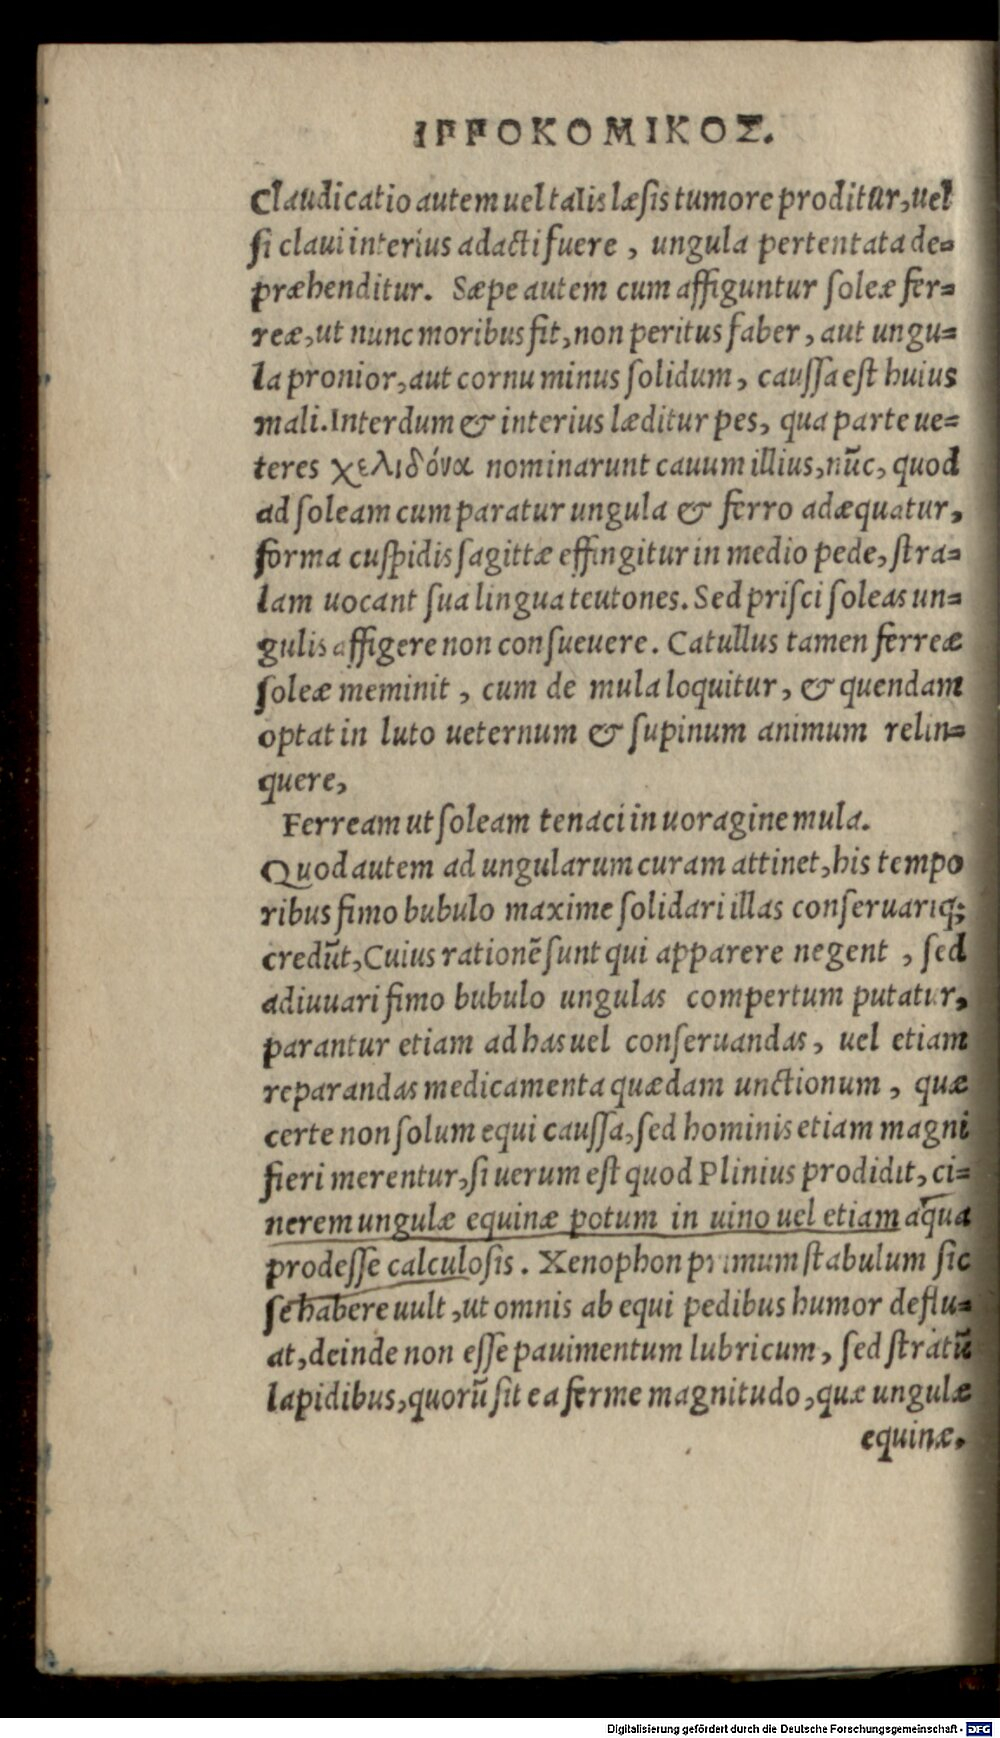 ΙΡΡΟΚΟΜΙΚΟΣ.
Claudicatio autem uel talis læsis tumore proditur, uel
si claui interius adacti fuere, ungula pertentata de=
præhenditur. Sæpe autem cum affiguntur soleæ fer=
reæ, ut nunc moribus fit, non peritus faber, aut ungu=
la pronior, aut cornu minus solidum, caussa est huius
mali. Interdum & interius læditur pes, qua parte ue=
teres χελιδόνα nominarunt cauum illius, nūc, quod
ad soleam cum paratur ungula & ferro adæquatur,
forma cuspidis sagittæ effingitur in medio pede, stra=
lam uocant sua lingua teutones. Sed prisci soleas un=
gulis affigere non consueuere. Catullus tamen ferreæ
soleæ meminit, cum de mula loquitur, & quendam
optat in luto ueternum & supinum animum relin=
quere,
Ferream ut soleam tenaci in uoragine mula.
Quod autem ad ungularum curam attinet, his tempo
ribus fimo bubulo maxime solidari illas conseruariq;
credūt, Cuius rationē sunt qui apparere negent, sed
adiuuari fimo bubulo ungulas compertum putatur,
parantur etiam ad has uel conseruandas, uel etiam
reparandas medicamenta quædam unctionum, quæ
certe non solum equi caussa, sed hominis etiam magni
fieri merentur, si uerum est quod Plinius prodidit, ci=
nerem ungulæ equinæ potum in uino uel etiam aqua
prodesse calculosis. Xenophon primum stabulum sic
se habere uult, ut omnis ab equi pedibus humor deflu=
at, deinde non esse pauimentum lubricum, sed stratū
lapidibus, quorū sit ea ferme magnitudo, quæ ungulæ
equinæ.
Digitalisierung gefördert durch die Deutsche Forschungsgemeinschaft - DFG